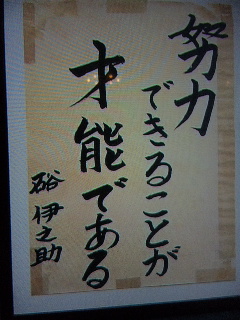 努力
できることが
才能である
硲伊之助